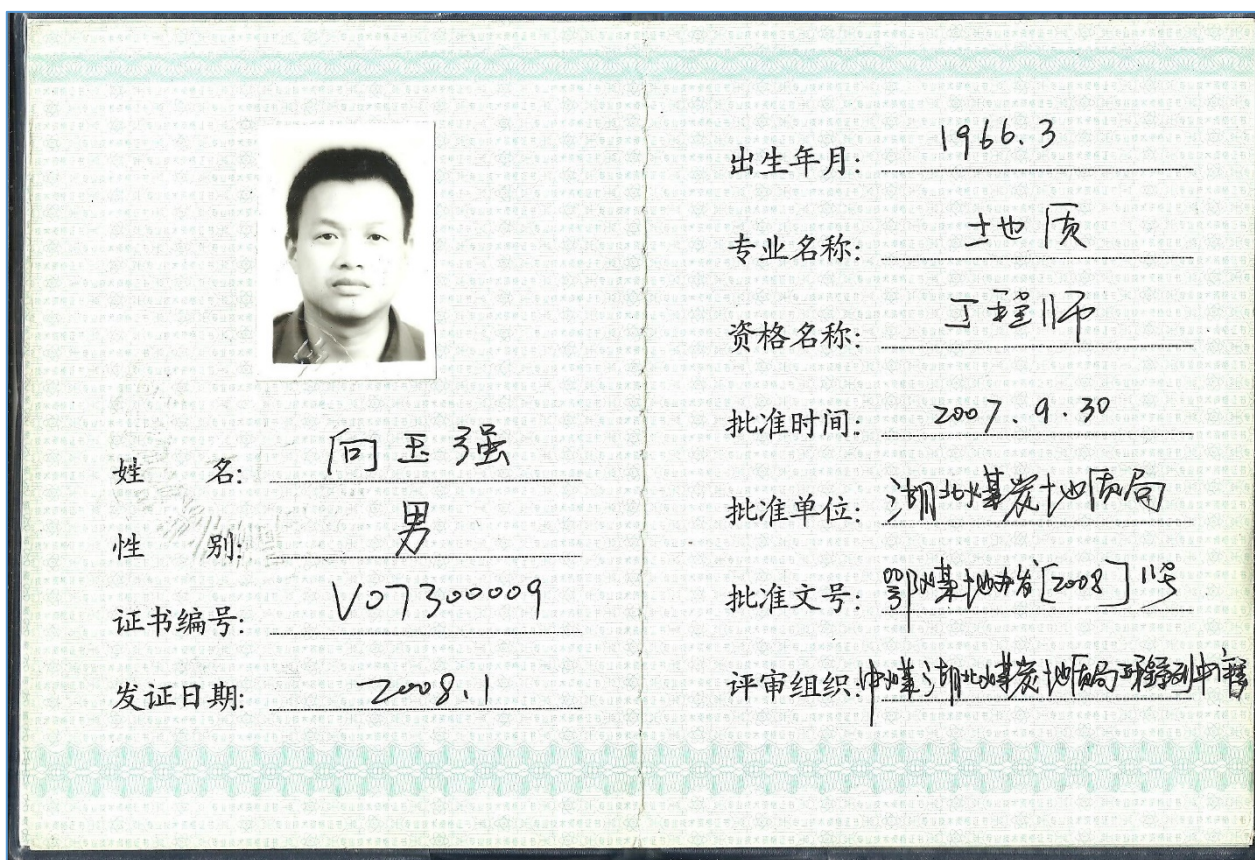 姓 名: 向玉强
性 别: 男
证书编号: V07300009
发证日期: 2008.1
出生年月: 1966.3
专业名称: 地质
资格名称: 工程师
批准时间: 2007.9.30
批准单位: 湖北煤炭地质局
批准文号: 鄂煤地办发[2008]11号
评审组织: 中煤湖北煤炭地质局工程系列中评委